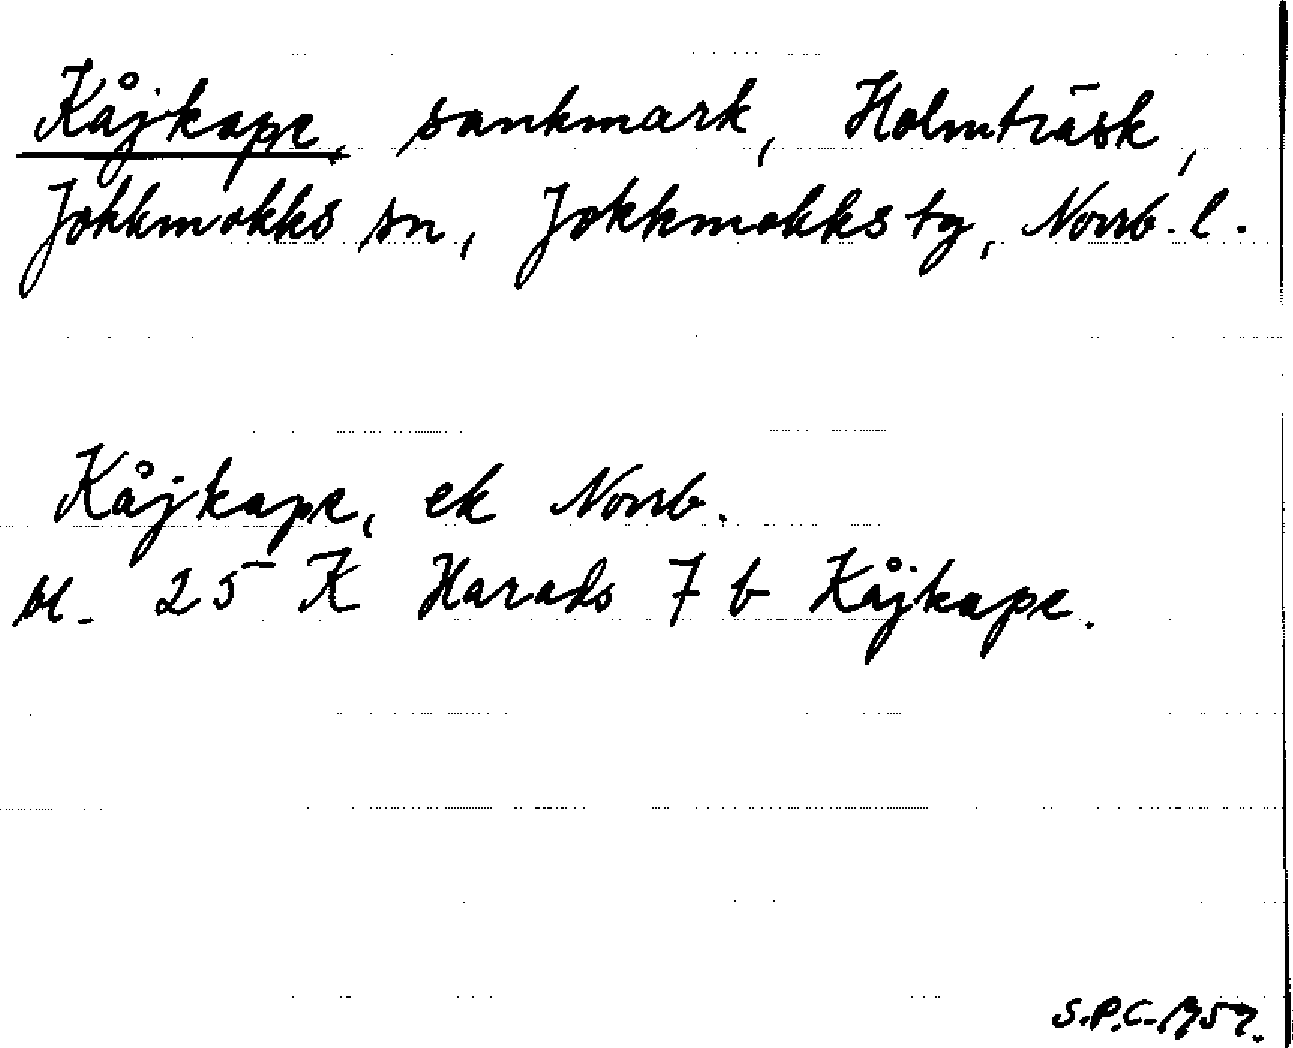 Kåjkape, sankmark, Holmträsk,
Jokkmokks sn, Jokkmokks tg, Norrb. l.
Kåjkape, ek Norrb.
bl. 25 K Harads 7 b Kåjkape.
S.P.C. 1957.